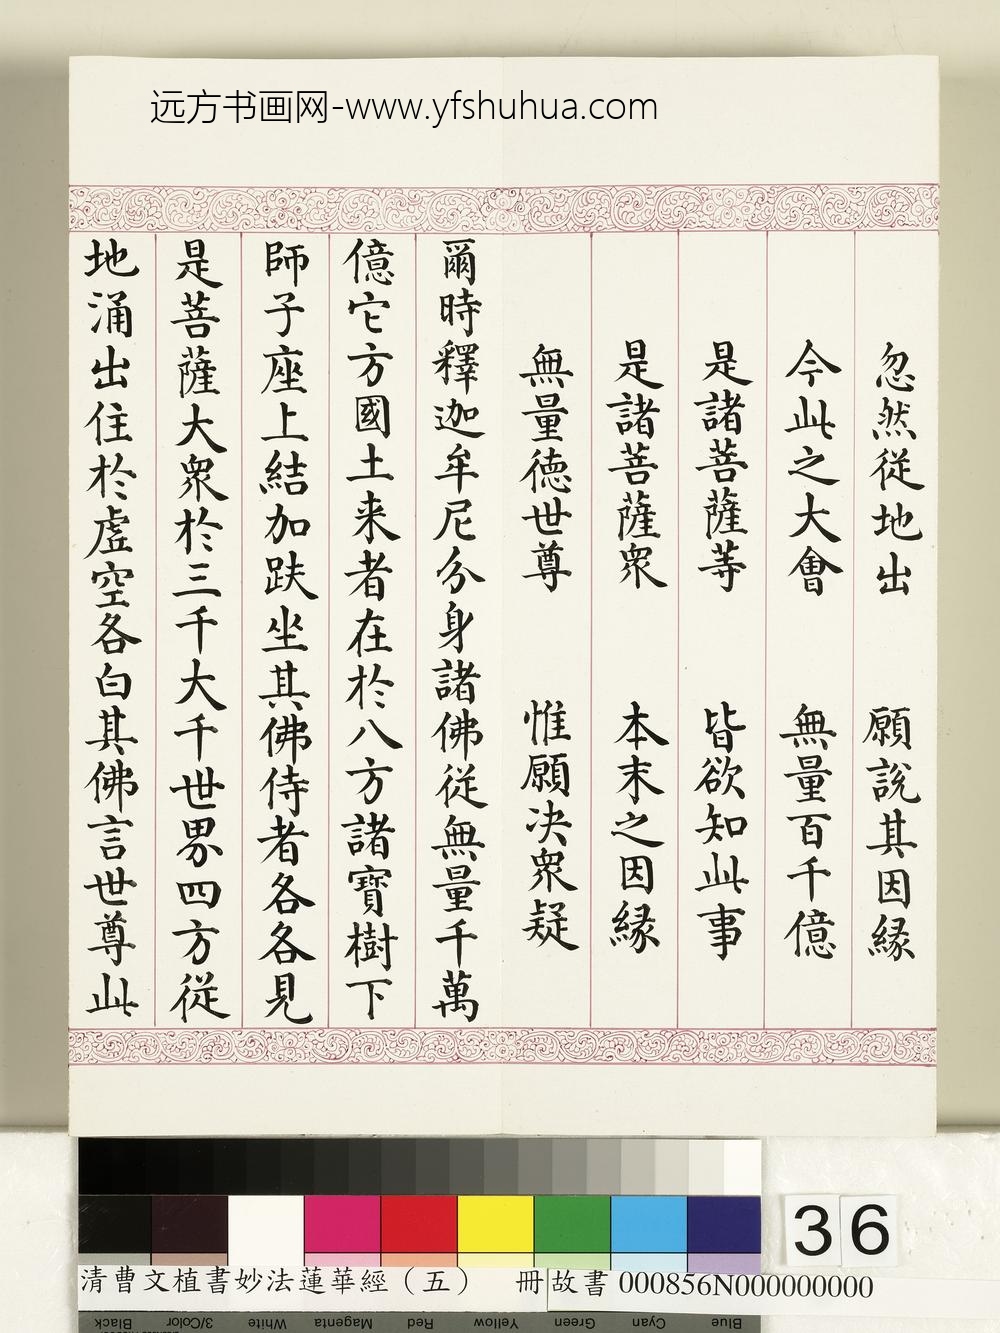 远方书画网-www.yfshuhua.com
忽然從地出 願說其因緣
今此之大會 無量百千億
是諸菩薩等 皆欲知此事
是諸菩薩衆 本末之因緣
無量德世尊 惟願决衆疑
爾時釋迦牟尼分身諸佛從無量千萬
億它方國土来者在於八方諸寶樹下
師子座上結加趺坐其佛侍者各各見
是菩薩大衆於三千大千世界四方從
地涌出住於虛空各白其佛言世尊此
36
清曹文植書妙法蓮華經（五） 冊 故書 000856N000000000
Black 3/Color White Magenta Red Yellow Green Cyan Blue